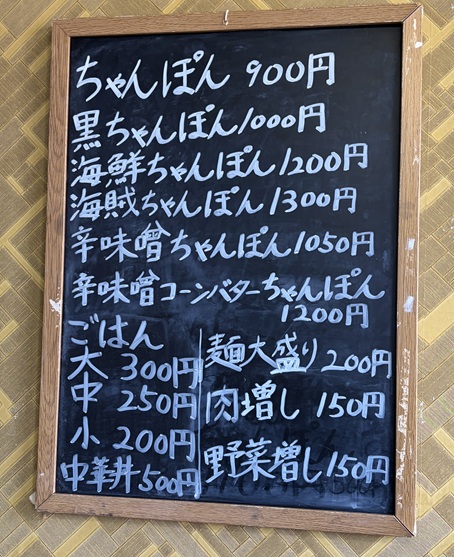 ちゃんぽん 900円
黒ちゃんぽん1000円
海鮮ちゃんぽん1200円
海賊ちゃんぽん1300円
辛味噌ちゃんぽん1050円
辛味噌コーンバターちゃんぽん
1200円
ごはん
大 300円
中 250円
小 200円
中華丼500円
麺大盛り200円
肉増し 150円
野菜増し150円